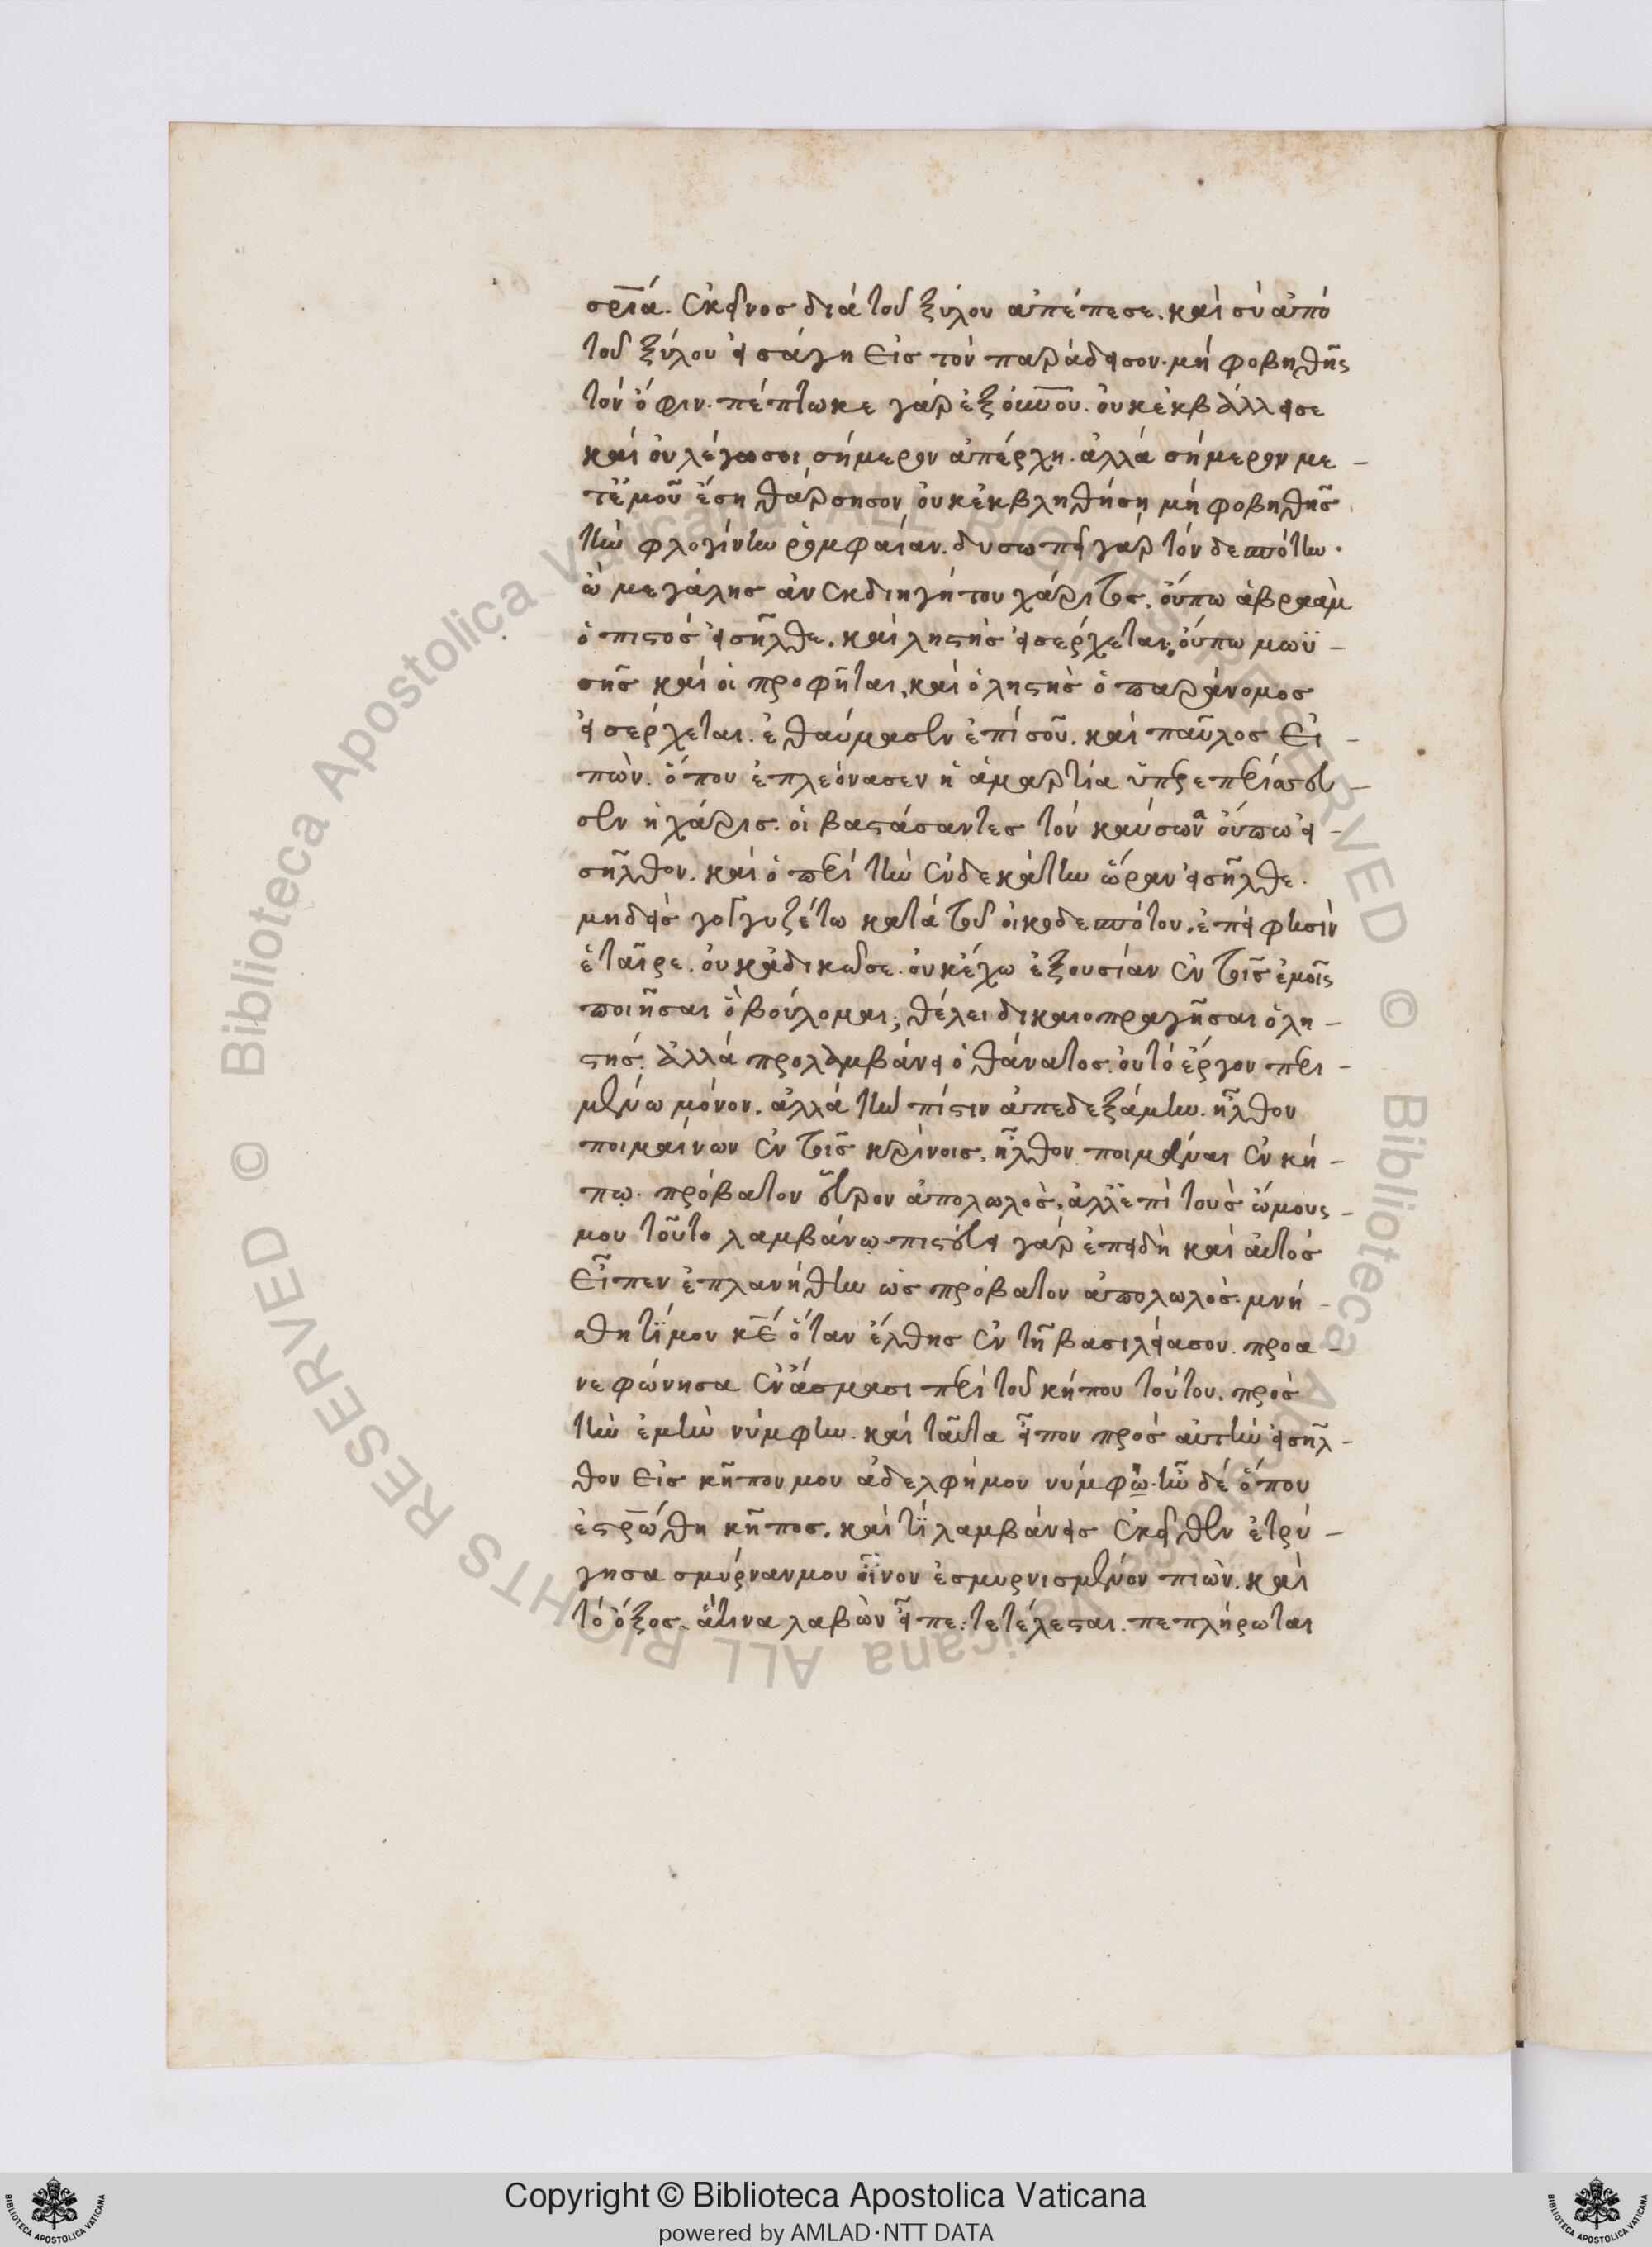 σρ̅ιά. ἐκεῖνος διὰ τοῦ ξύλου ἀπέπεσε. καὶ σὺ ἀπὸ
τοῦ ξύλου εἰσάγη εἰς τὸν παράδεισον. μὴ φοβηθῆς
τὸν ὄφιν. πέπτωκε γὰρ ἐξ οὐ̅νου. οὐκ ἐκβάλλει σε
καὶ οὐ λέγω σοι σήμερον ἀπέρχη. ἀλλὰ σήμερον με -
τ' ἐμοῦ ἔση θάρσησον οὐκ ἐκβληθήση μὴ φοβηθῆς
τὴν φλογίνην ῥομφαίαν. δυσωπεῖ γὰρ τὸν δεσπότην.
ὢ μεγάλης ἀνεκδιηγήτου χάριτος. οὔπω ἁβραὰμ
ὁ πιστὸς εἰσῆλθε. καὶ ληστὴς εἰσέρχεται. οὔπω μωϋ -
σῆς καὶ οἱ προφῆται, καὶ ὁ ληστὴς ὁ παράνομος
εἰσέρχεται. ἐθαύμασεν ἐπὶ σοῦ. καὶ παῦλος εἰ -
πών. ὅπου ἐπλεόνασεν ἡ ἁμαρτία ὑπερεπερίσσευ -
σεν ἡ χάρις. οἱ βαστάσαντες τὸν καύσωνα οὔπω εἰ -
σῆλθον. καὶ ὁ περὶ τὴν ἑνδεκάτην ὥραν εἰσῆλθε.
μηδεὶς γογγυζέτω κατὰ τοῦ οἰκοδεσπότου. ἐπεὶ φησὶν
ἑταῖρε. οὐκ ἀδικῶ σε. οὐκ ἔχω ἐξουσίαν ἐν τοῖς ἐμοῖς
ποιῆσαι ὃ βούλομαι; θέλει δικαιοπραγῆσαι ὁ λη -
στής. ἀλλὰ προλαμβάνει ὁ θάνατος. οὐ τὸ ἔργον περι -
μένω μόνον. ἀλλὰ τὴν πίστιν ἀπεδεξάμην. ἦλθον
ποιμαίνων ἐν τοῖς κρίνοις. ἦλθον ποιμᾶναι ἐν κή -
πω. πρόβατον εὗρον ἀπολωλὸς. ἀλλ' ἐπὶ τοὺς ὤμους -
μου τοῦτο λαμβάνω. πιστεύει γὰρ ἐπειδὴ καὶ αὐτὸς
εἶπεν ἐπλανήθην ὡς πρόβατον ἀπολωλός. μνή -
σθητί μου κ̅ε ὅταν ἔλθης ἐν τῆ βασιλεία σου. προα -
νεφώνησα ἐν ἄσμασι περὶ τοῦ κήπου τούτου. πρὸς
τὴν ἐμὴν νύμφην. καὶ ταῦτα εἶπον πρὸς αὐτὴν εἰσῆλ -
θον εἰς κῆπον μου ἀδελφή μου νύμφη. ἦν δὲ ὅπου
ἐστρ̅ώθη κῆπος. καὶ τί λαμβάνεις ἐκεῖθεν ἐτρύ -
γησα σμύρναν μου οἶνον ἐσμυρνισμένον πιών. καὶ
τὸ ὄξος. ἅτινα λαβὼν εἶπε. τετέλεσται. πεπλήρωται